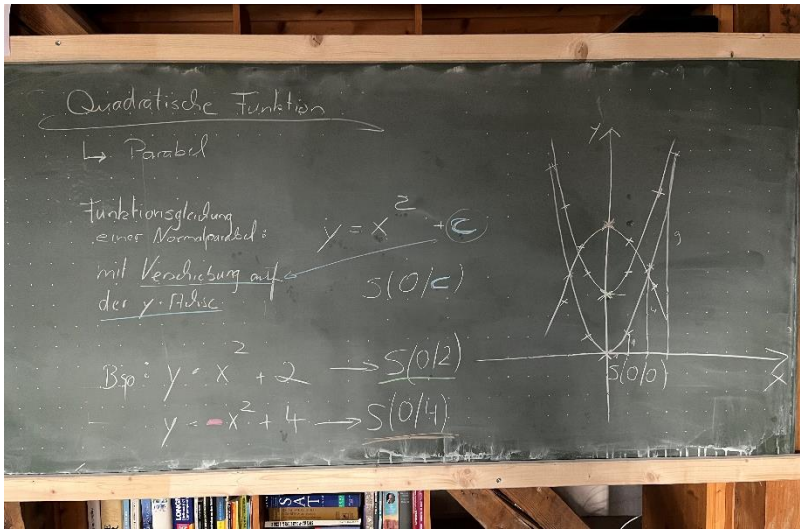 Quadratische Funktion
↳ Parabel
Funktionsgleichung
einer Normalparabel:
mit Verschiebung auf
der y-Achse
y = x² + c
S(0/c)
Bsp: y = x² + 2 → S(0/2)
y = -x² + 4 → S(0/4)
y
9
4
S(0/0)
x
SAT